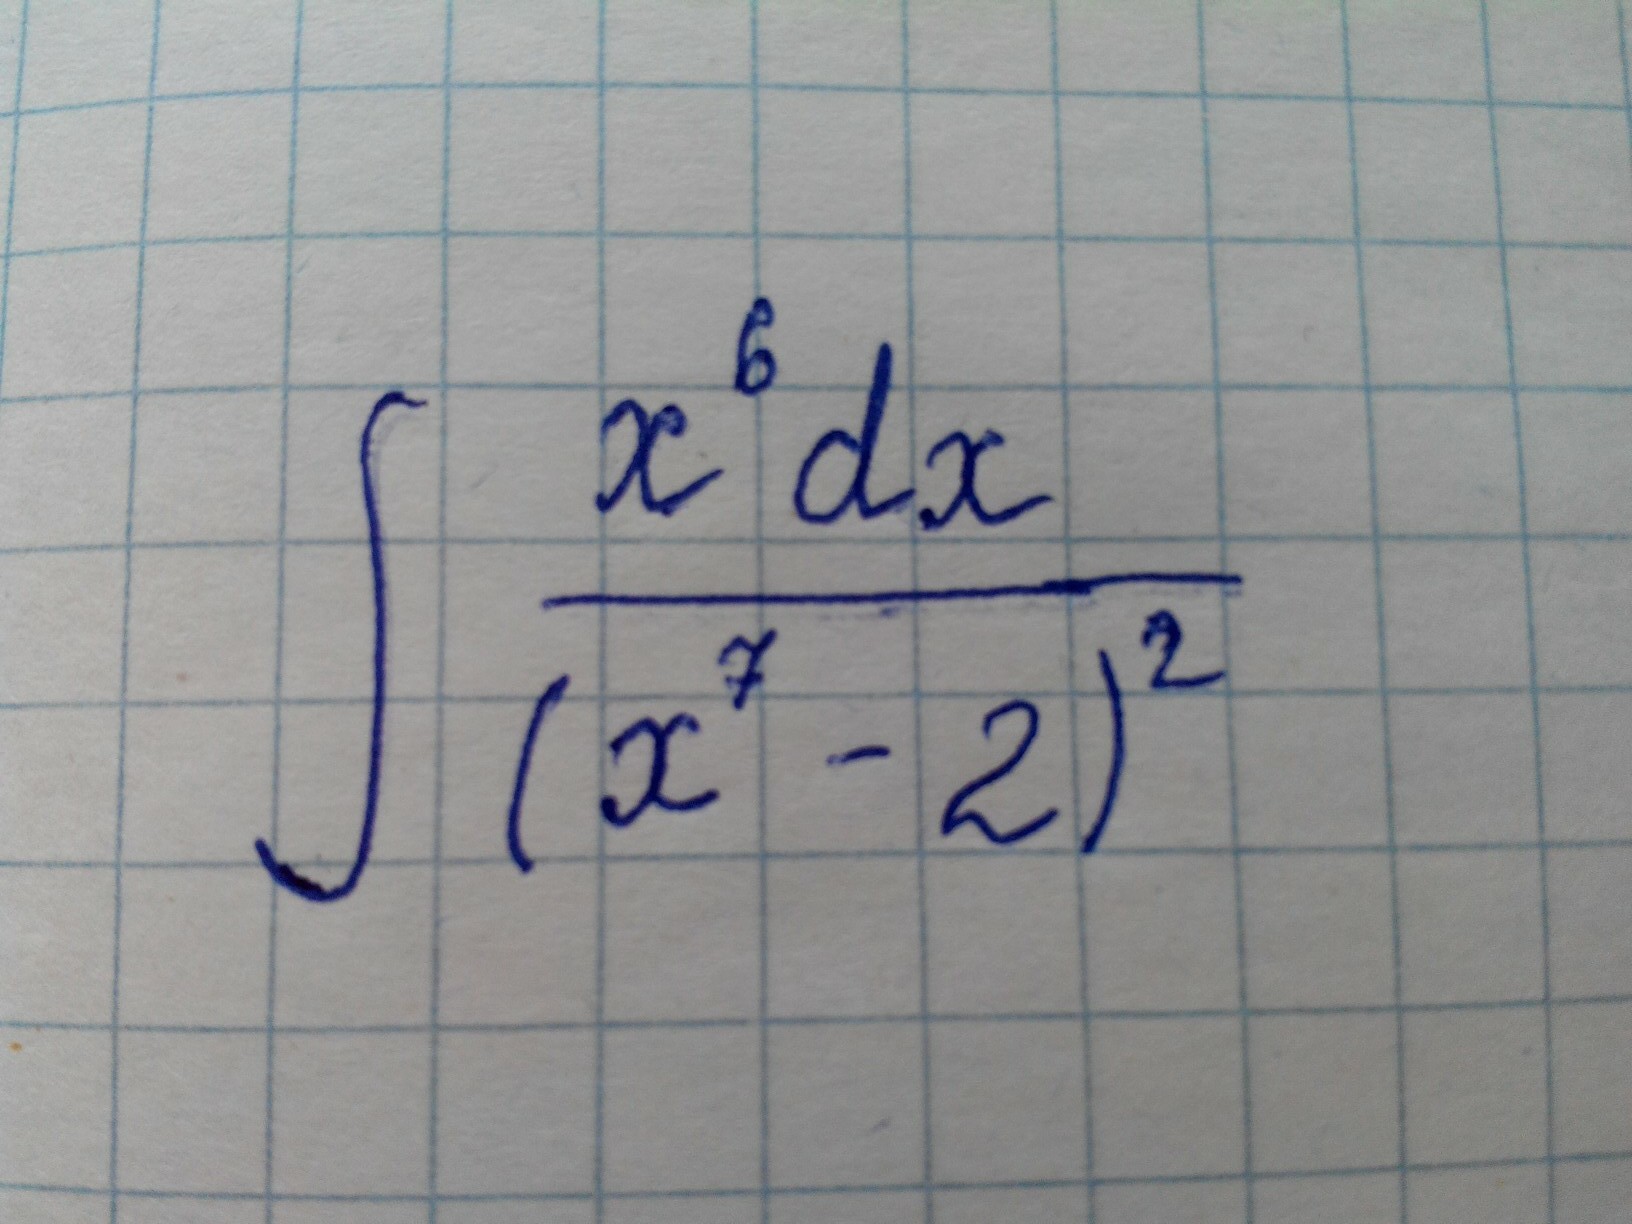 ∫ x⁶dx / (x⁷ - 2)²